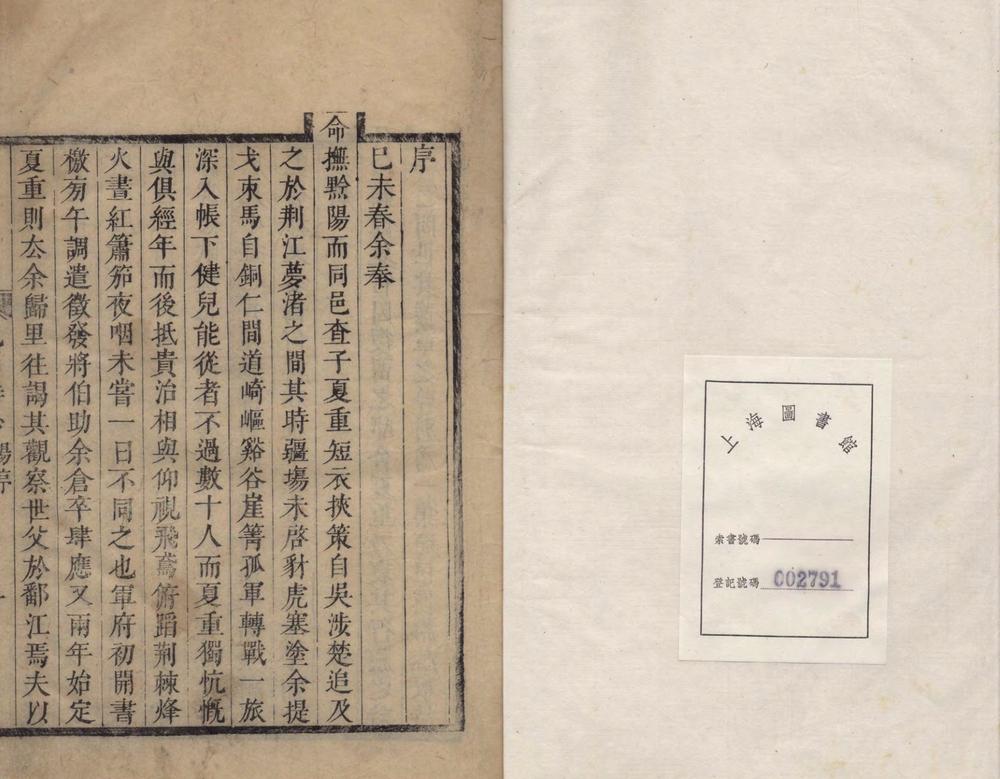 上海圖書館
索書號碼
登記號碼 002791
序
己未春余奉
命撫黔陽而同邑查子夏重短衣挾策自吳涉楚追及
之於荆江夢渚之間其時疆塲未啓豺虎塞塗余提
戈束馬自銅仁間道崎嶇谿谷崖箐孤軍轉戰一旅
深入帳下健兒能從者不過數十人而夏重獨慷慨
與俱經年而後抵貴治相與仰視飛鳶俯蹈荆棘烽
火晝紅簫笳夜咽未嘗一日不同之也軍府初開書
檄旁午調遣徵發將伯助余倉卒肆應又兩年始定
夏重則厺余歸里往謁其觀察世父於鄱江焉夫以